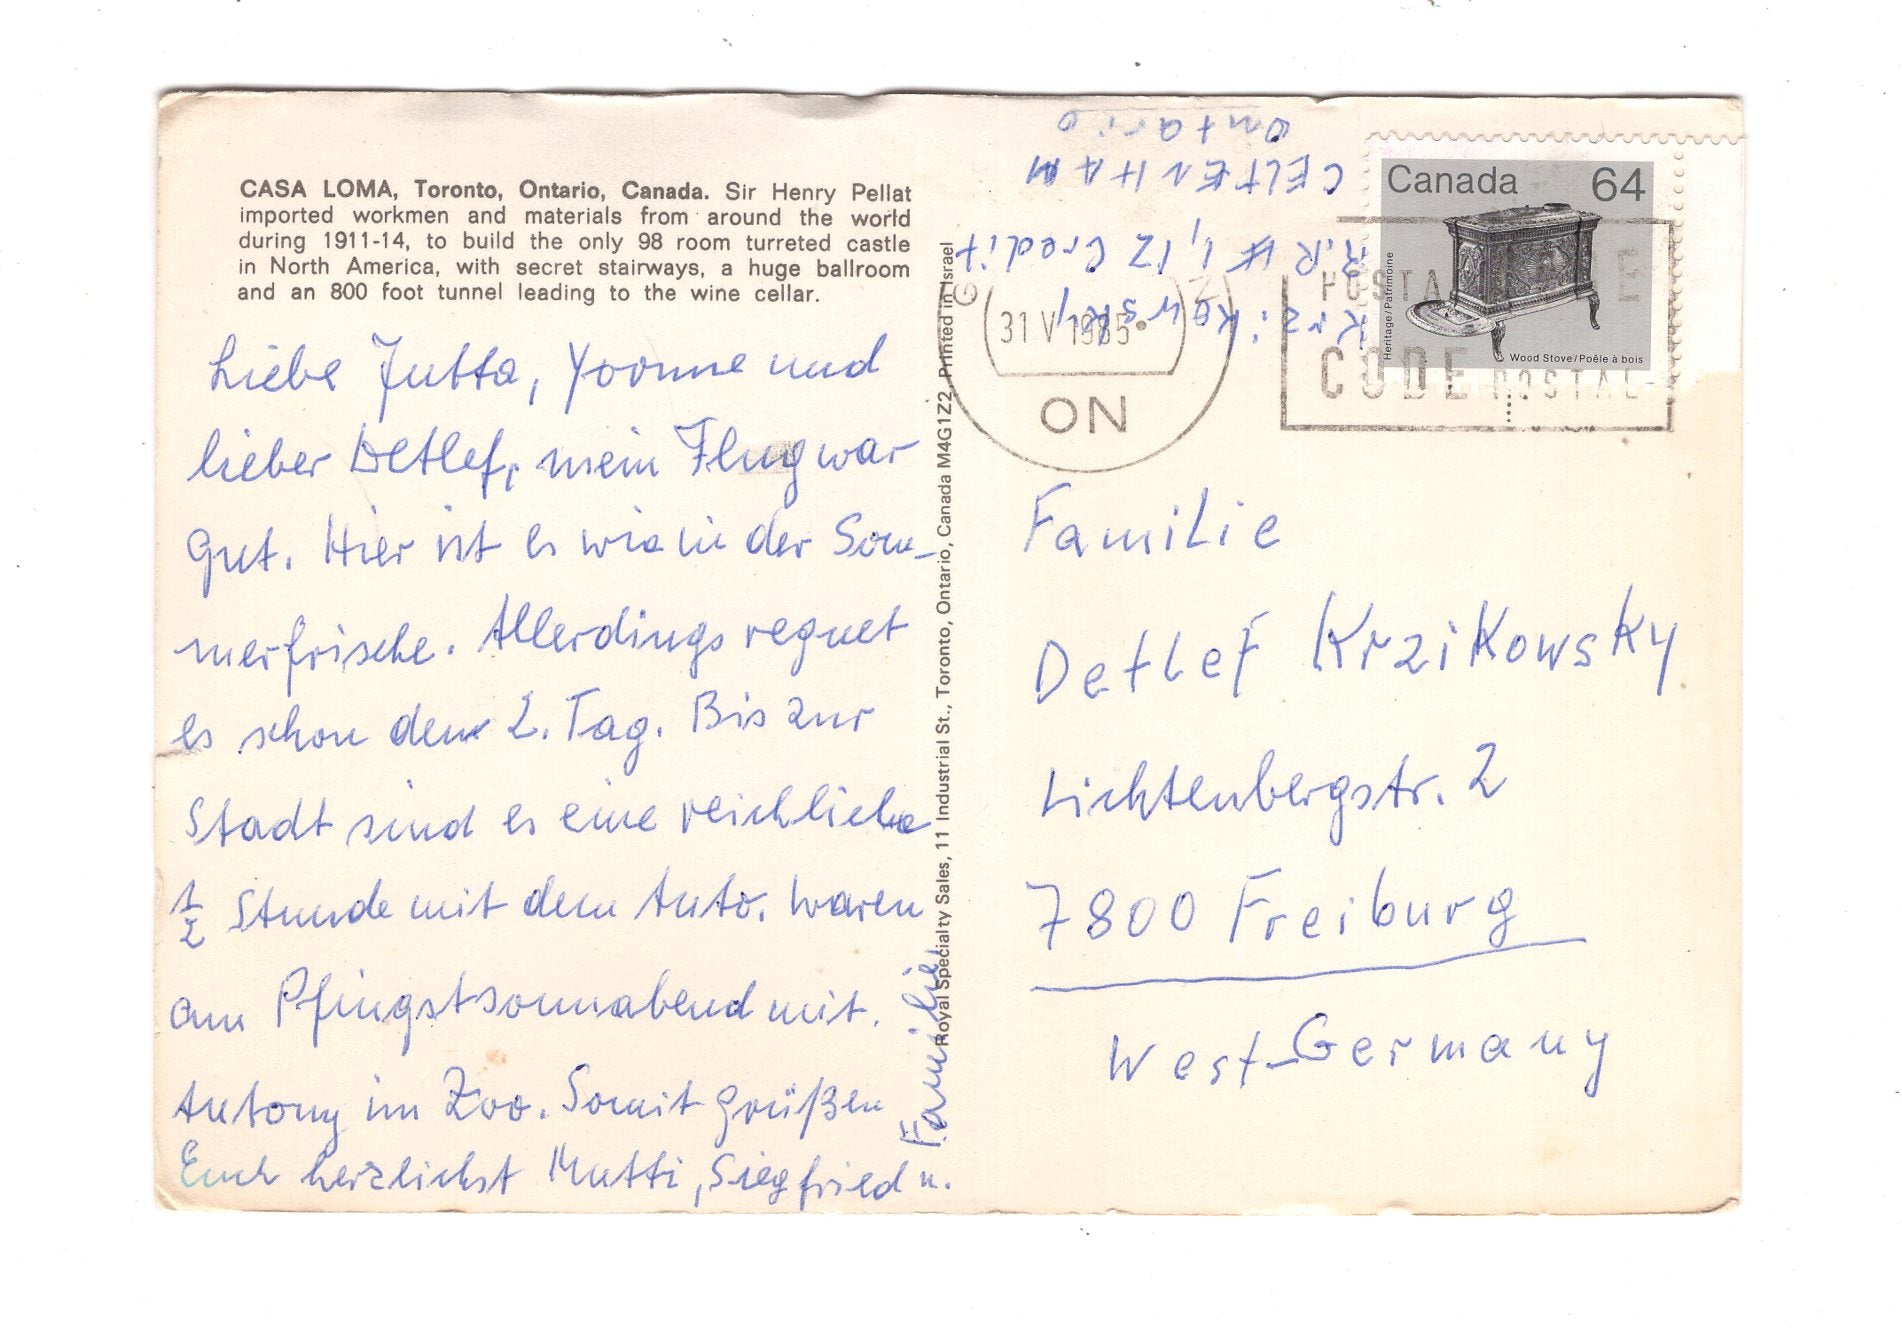 CASA LOMA, Toronto, Ontario, Canada. Sir Henry Pellat
imported workmen and materials from around the world
during 1911-14, to build the only 98 room turreted castle
in North America, with secret stairways, a huge ballroom
and an 800 foot tunnel leading to the wine cellar.
Liebe Jutta, Yvonne und
lieber Detlef, mein Flug war
gut. Hier ist es wie in der Som-
merfrische. Allerdings regnet
es schon den 2. Tag. Bis zur
Stadt sind es eine reichliche
1/2 Stunde mit dem Auto. Waren
am Pfingstsonnabend mit
Antony im Zoo. Somit grüßen
Euch herzlichst Mutti, Siegfried u.
Familie
Royal Specialty Sales, 11 Industrial St., Toronto, Ontario, Canada M4G1Z2 Printed in Israel
Krzikowsky
R.R # 1, 12 Credit
CELTENHAM
Ontario
Canada 64
Heritage/Patrimoine
Wood Stove/Poêle à bois
31 V 1985
ON
POSTAL
CODE POSTAL
Familie
Detlef Krzikowsky
Lichtenbergstr. 2
7800 Freiburg
West-Germany